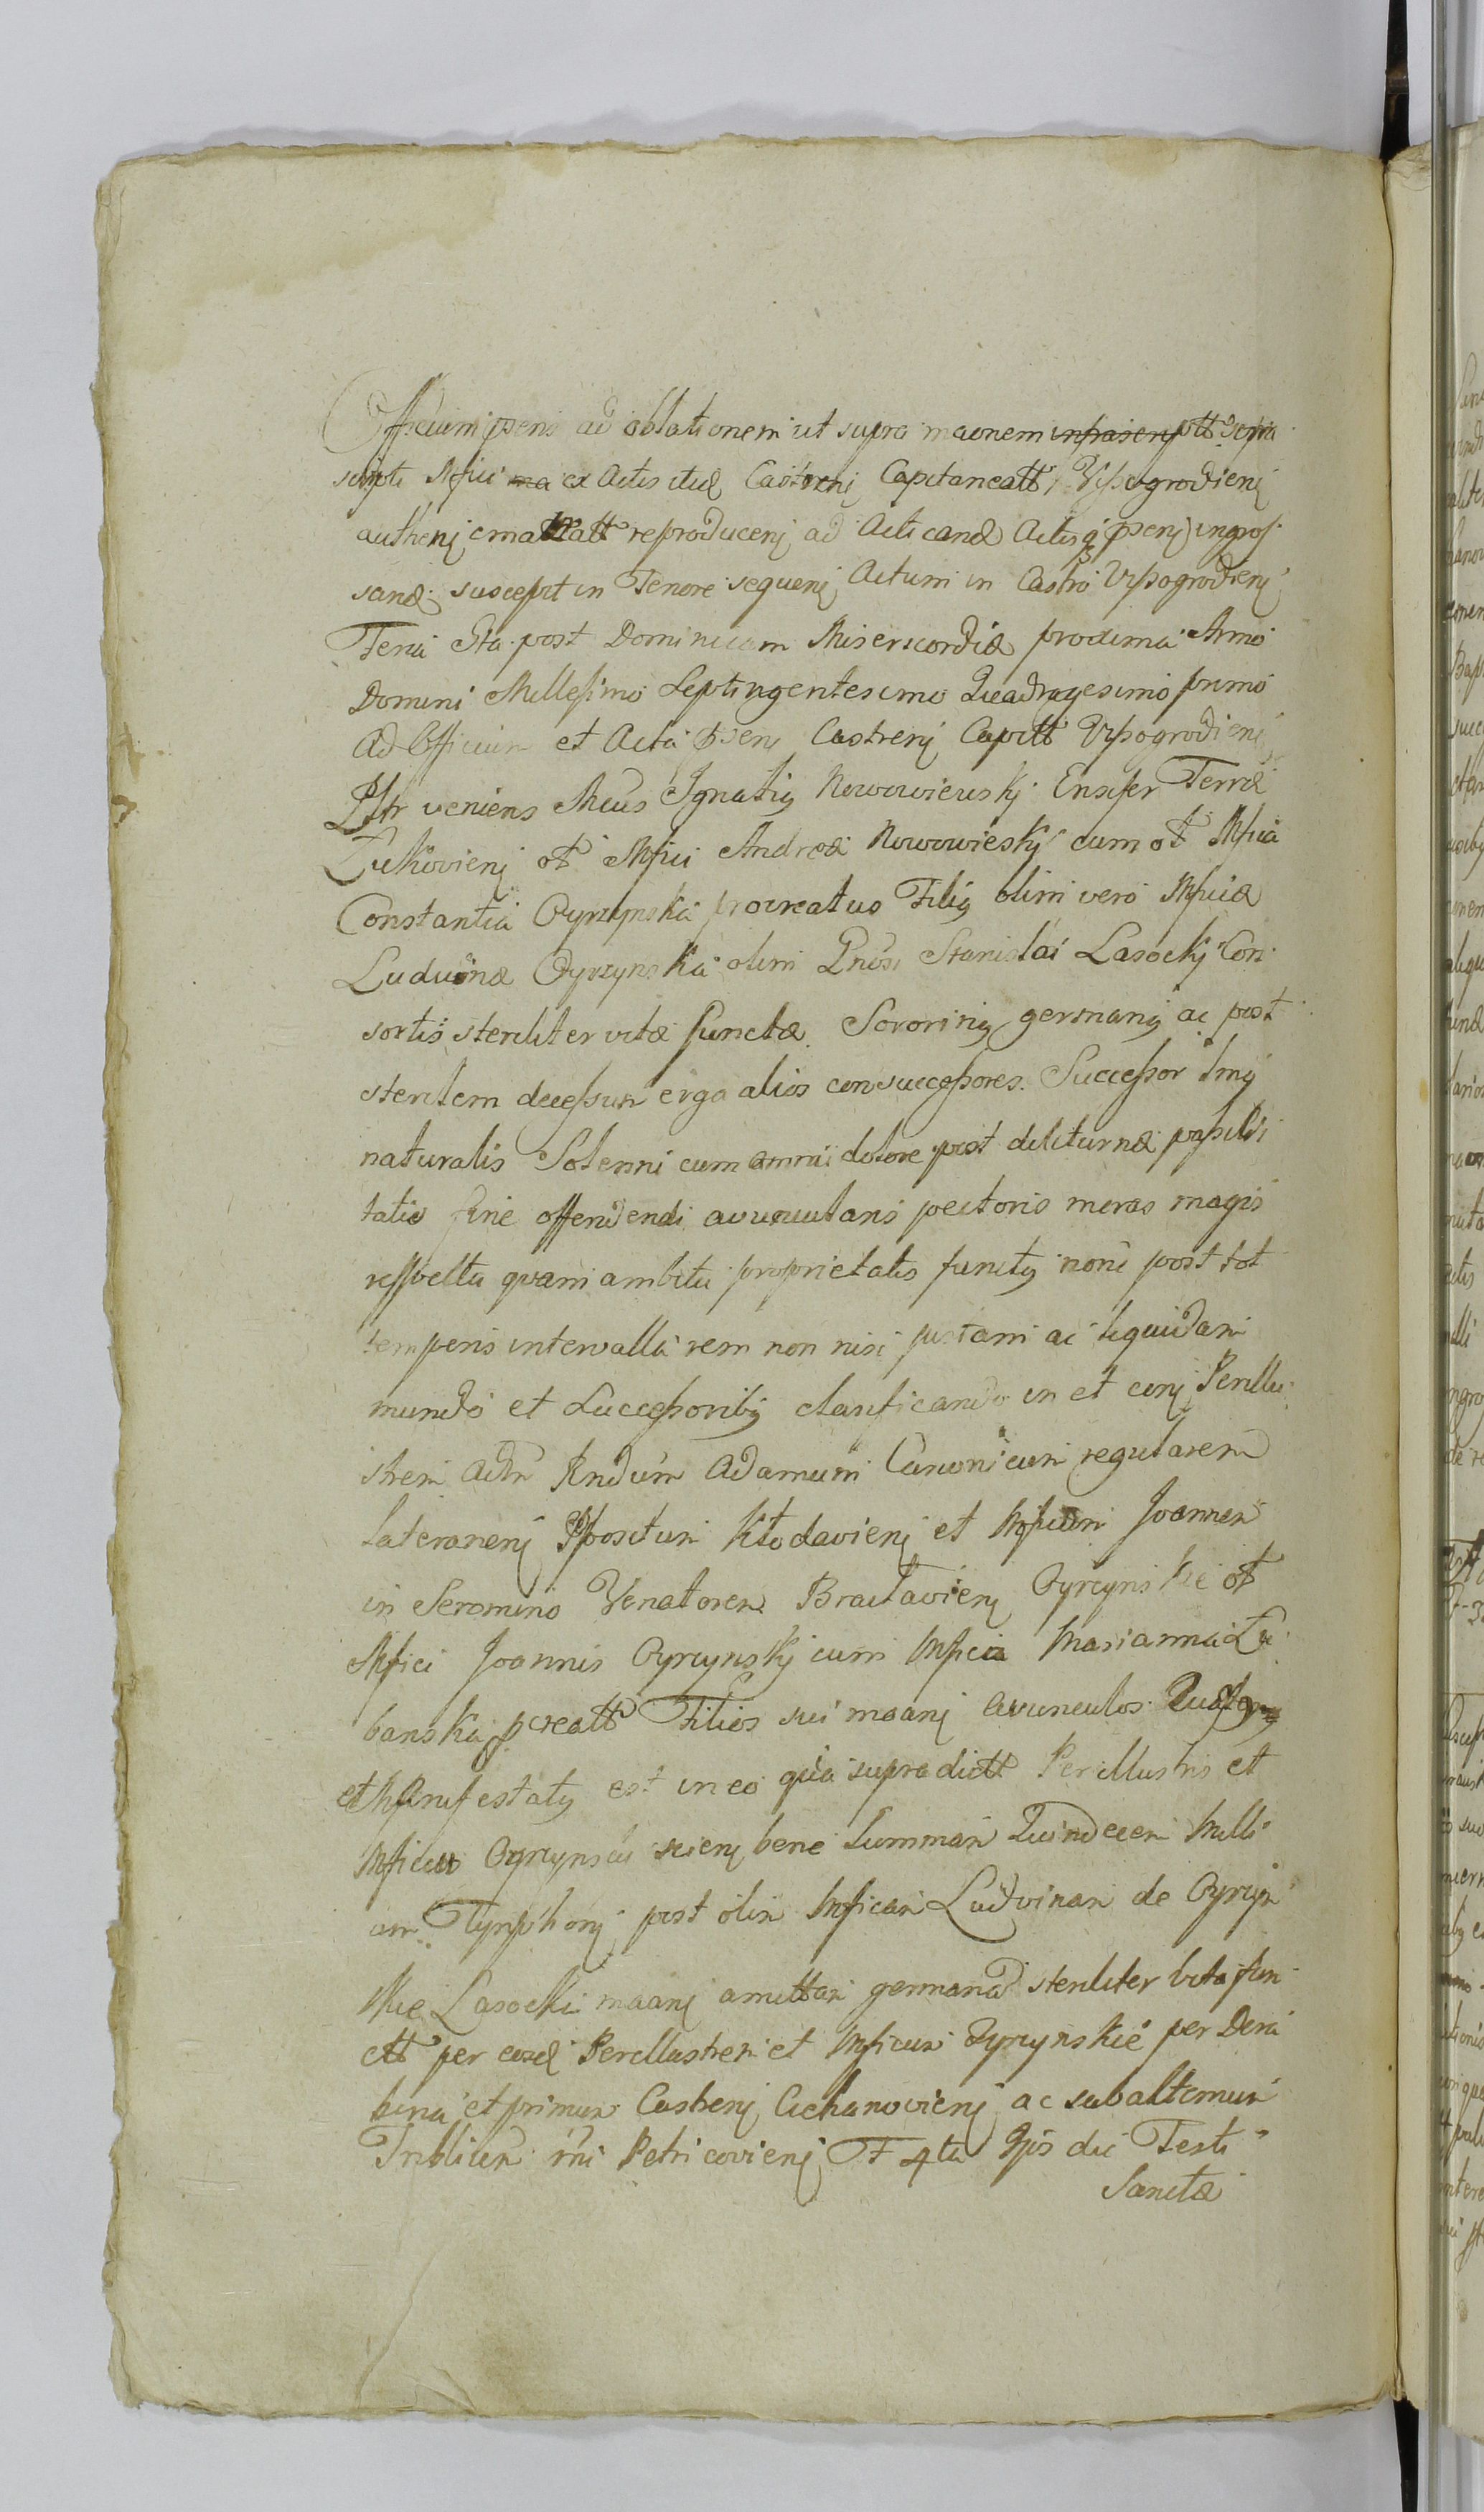 Officium psens ad oblationem ut supra maonem infrascrptt supra
scripti Mfici ma ex Actis itid Castrenj Capitaneatt Vissogrodienj
authenj emanatt reproducenj ad Acticand Actisq psenj ingros
sand suscepit in Tenore sequenj Actum in Castro Vissogrodienj
Feria 6ta post Dominicam Misericordiæ proxima Anno
Domini Millesimo Septingentesimo Quadragesimo primo
Ad Officium et Acta psens Castrenj Capitt Vissogrodienj
Psltr veniens Mcus Ignatiq Nowowieyskj Ensifer Terræ
Lukovienj ol Mfici Andreæ Nowowieskj cum ol Mfica
Constantia Cyrzynska procreatus Filiq olim vero Mficæ
Ludvinæ Cyrzynska olim Gnosi Stanislai Lasockj Con
sortis steriliter vita functæ Sororinq germanq ac post
sterilem decessum erga alios consuccessores Successor Lmq
naturalis Solenni cum omni dolore post diuturnæ passibi
tatis fine offendendi avunculans pectoris moras magis
respectu quam ambitu proprietatis functq nonc post tot
temporis intervalla rem non nisi justam ac liquidam
mundo et Successoribq clarificando in et conj Perillu
strem Adm Rndum Adamum Canonicum regularem
Lateranenj Ppositum Kłodavienj et Mficum Joannem
in Seromino Venatorem Braclavienj Cyrcynskie ol
Mfici Joannis Cyrcynskj cum Mfica Marianna Lu
banska pcreatt Filios sui maanj avunculos Questq
et Manifestatq est in eo quia supradictt Perillustris et
Mficus Cyrcynscy scienj bene Summam Quindecem Milli
am Tynphonj post olim Mficam Ludvinam de Cyrcyn
skie Lasocki maanj amittam germanā steriliter vita fun
ctt per eosd Perillustrem et Mficum Cyrcynskie per Dera
bina et primum Castrenj Ciechanovienj ac subalternum
Triblium rni Petricovienj F 4ta Ipis die Festi
Sanctæ